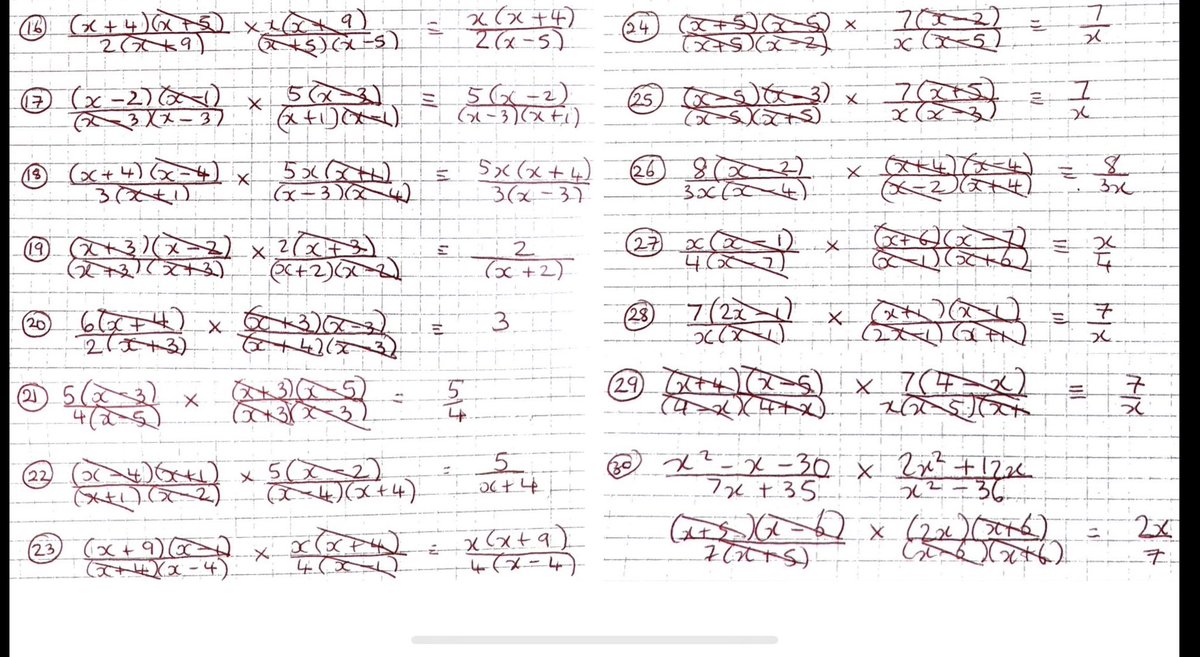 (16) (x + 4)(x + 5) / 2(x + 9) × x(x + 9) / (x + 5)(x - 5) = x(x + 4) / 2(x - 5)
(17) (x - 2)(x - 1) / (x - 3)(x - 3) × 5(x - 3) / (x + 1)(x - 1) = 5(x - 2) / (x - 3)(x + 1)
(18) (x + 4)(x - 4) / 3(x + 1) × 5x(x + 1) / (x - 3)(x - 4) = 5x(x + 4) / 3(x - 3)
(19) (x + 3)(x - 2) / (x + 3)(x + 3) × 2(x + 3) / (x + 2)(x - 2) = 2 / (x + 2)
(20) 6(x + 4) / 2(x + 3) × (x + 3)(x - 3) / (x + 4)(x - 3) = 3
(21) 5(x - 3) / 4(x - 5) × (x + 3)(x - 5) / (x + 3)(x - 3) = 5 / 4
(22) (x - 4)(x + 1) / (x + 1)(x - 2) × 5(x - 2) / (x - 4)(x + 4) = 5 / x + 4
(23) (x + 9)(x - 1) / (x + 4)(x - 4) × x(x + 4) / 4(x - 1) = x(x + 9) / 4(x - 4)
(24) (x + 5)(x - 5) / (x + 5)(x - 2) × 7(x - 2) / x(x - 5) = 7 / x
(25) (x - 5)(x - 3) / (x - 5)(x + 5) × 7(x + 5) / x(x - 3) = 7 / x
(26) 8(x - 2) / 3x(x - 4) × (x + 4)(x - 4) / (x - 2)(x + 4) = 8 / 3x
(27) x(x - 1) / 4(x - 7) × (x + 6)(x - 7) / (x - 1)(x + 6) = x / 4
(28) 7(2x - 1) / x(x - 1) × (x + 1)(x - 1) / (2x - 1)(x + 1) = 7 / x
(29) (x + 4)(x - 5) / (4 - x)(4 + x) × 7(4 - x) / x(x - 5)(x + = 7 / x
(30) x² - x - 30 / 7x + 35 × 2x² + 12x / x² - 36
(x + 5)(x - 6) / 7(x + 5) × (2x)(x + 6) / (x - 6)(x + 6) = 2x / 7